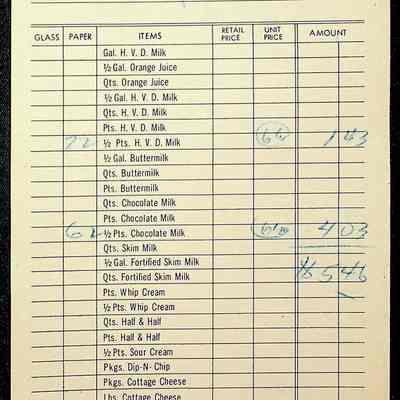 GLASS PAPER ITEMS RETAIL PRICE UNIT PRICE AMOUNT
Gal. H. V. D. Milk
½ Gal. Orange Juice
Qts. Orange Juice
½ Gal. H. V. D. Milk
Qts. H. V. D. Milk
Pts. H. V. D. Milk
22 ½ Pts. H. V. D. Milk 6½ 1 43
½ Gal. Buttermilk
Qts. Buttermilk
Pts. Buttermilk
Qts. Chocolate Milk
Pts. Chocolate Milk
62 ½ Pts. Chocolate Milk 6½ 4 03
Qts. Skim Milk
½ Gal. Fortified Skim Milk $5 46
Qts. Fortified Skim Milk
Pts. Whip Cream
½ Pts. Whip Cream
Qts. Half & Half
Pts. Half & Half
½ Pts. Sour Cream
Pkgs. Dip-N-Chip
Pkgs. Cottage Cheese
Lbs. Cottage Cheese